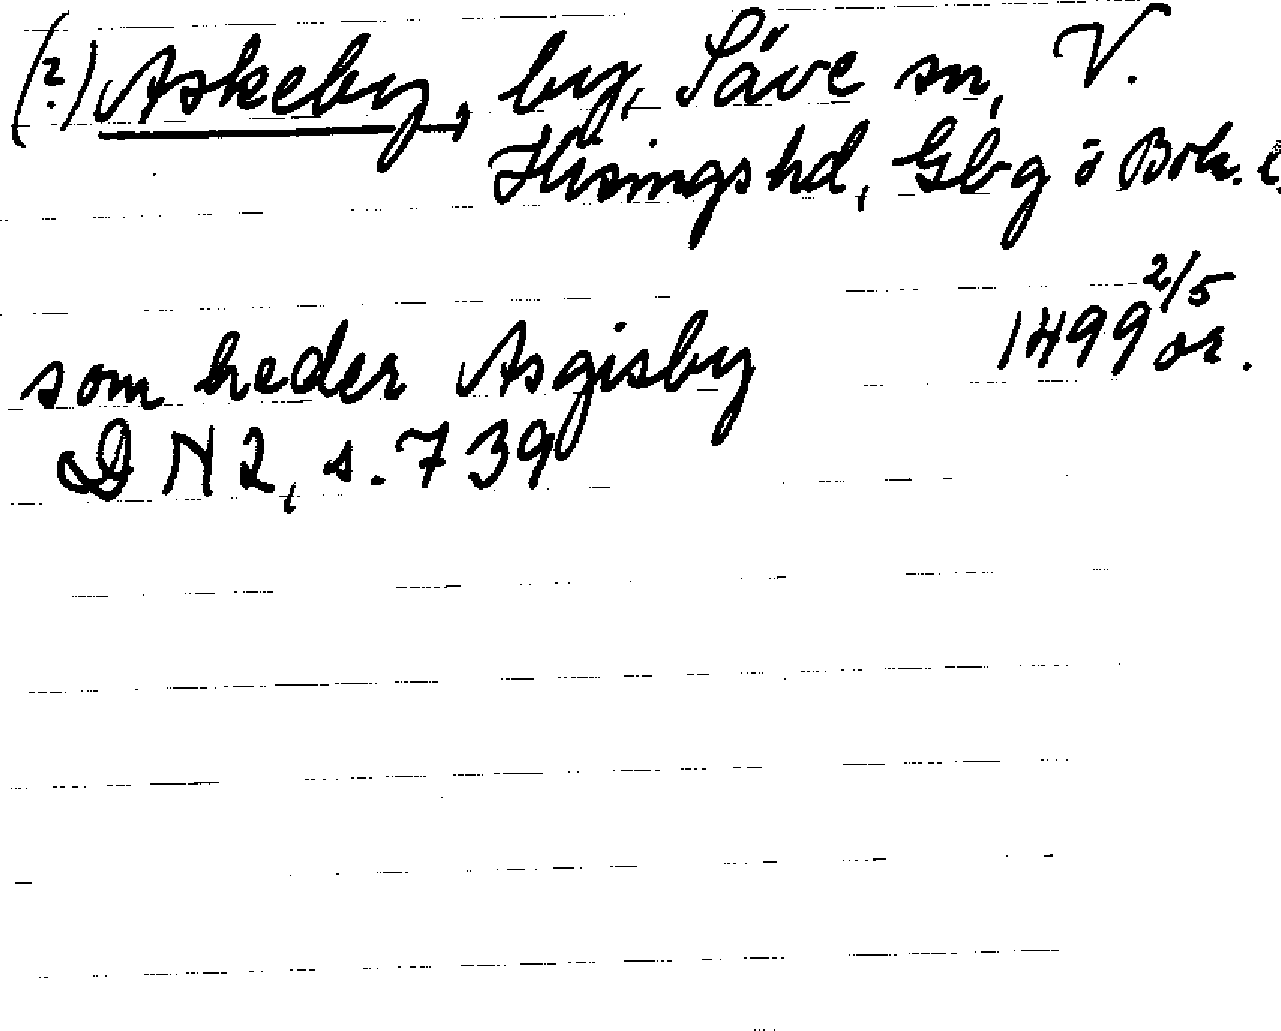 (?) Askeby, by, Säve sn, V.
Hisings hd, Gbg o Boh. l.
som heder Asgisby 1499 2/5 or.
DN 2, s. 739